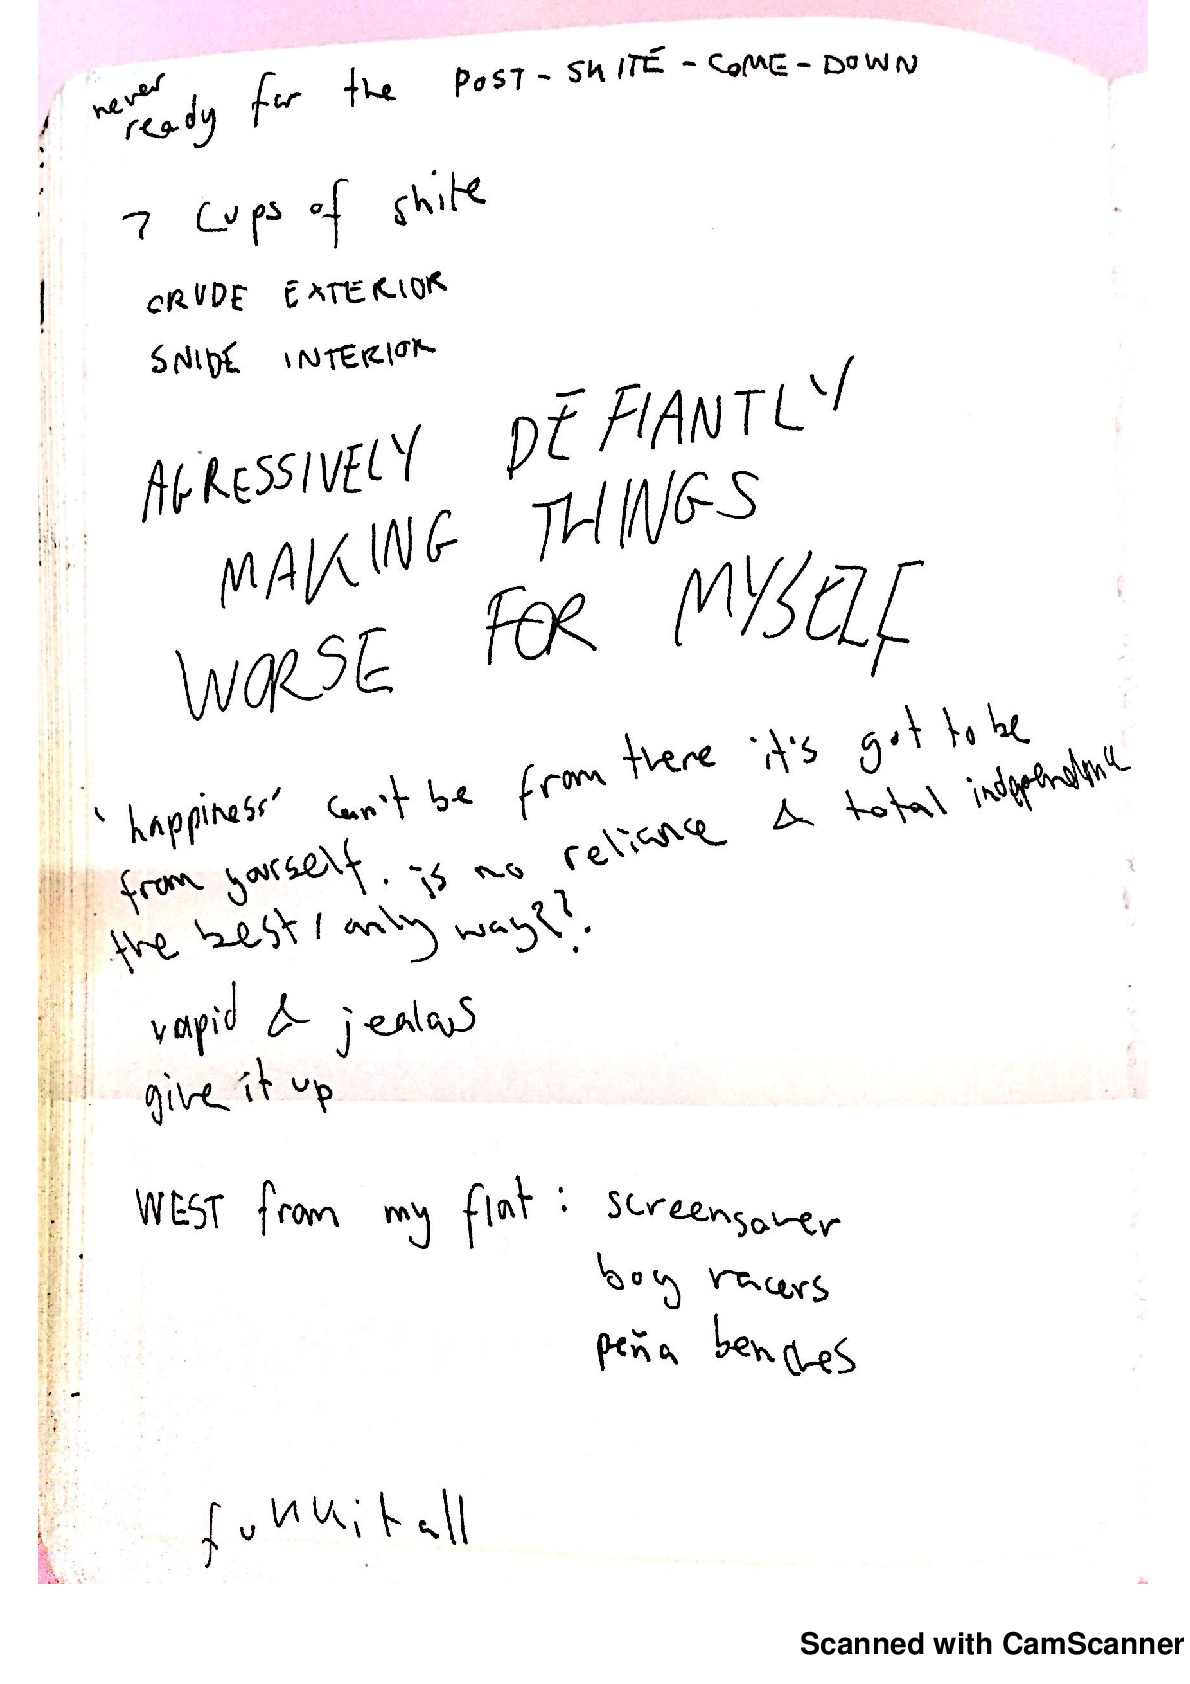 never
ready for the POST-SHITE-COME-DOWN
7 cups of shite
CRUDE EXTERIOR
SNIDE INTERIOR
AGRESSIVELY DEFIANTLY
MAKING THINGS
WORSE FOR MYSELF
'happiness' can't be from there it's got to be
from yourself. is no reliance & total independence
the best / only way??.
vapid & jealous
give it up
WEST from my flat: screensaver
boy racers
peña benches
Scanned with CamScanner